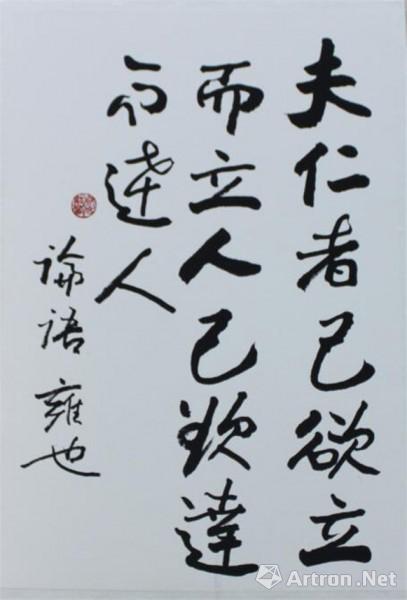 夫仁者己欲立
而立人己欲達
而達人
論語 雍也
Artron.Net